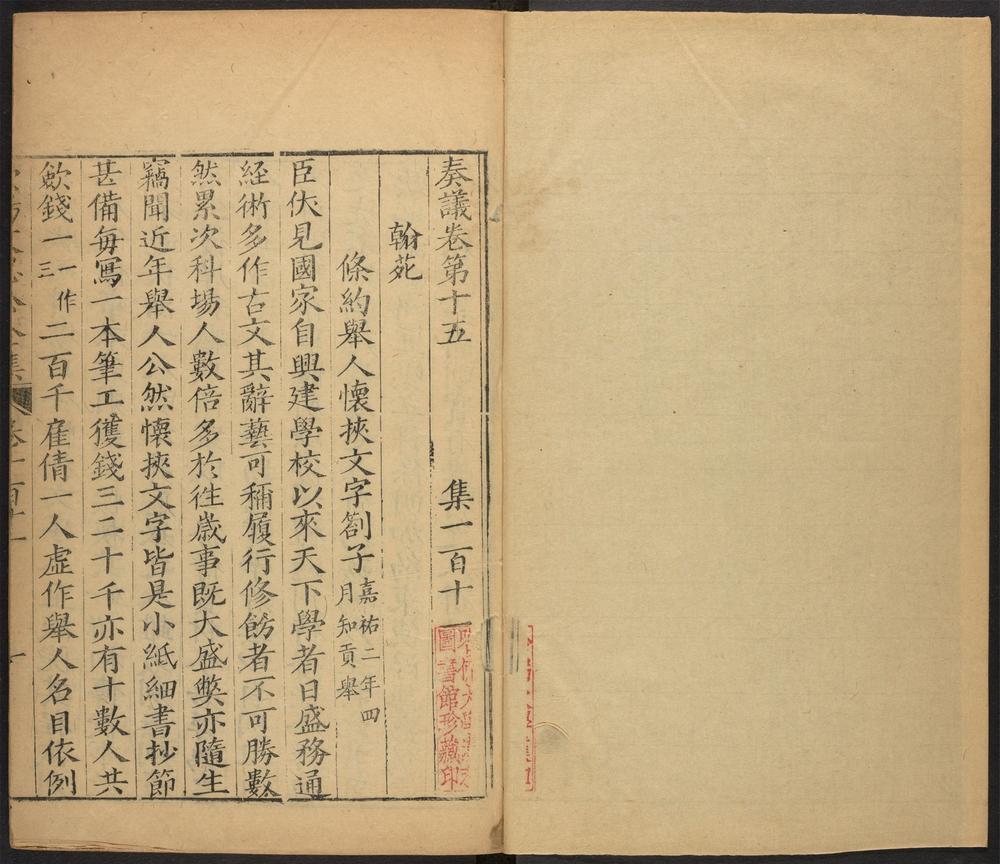 奏議卷第十五 集一百十一
翰苑
條約舉人懷挾文字劄子 嘉祐二年四月知貢舉
臣伏見國家自興建學校以來天下學者日盛務通
經術多作古文其辭藝可稱履行修飭者不可勝數
然累次科場人數倍多於徃歲事既大盛獘亦隨生
竊聞近年舉人公然懷挾文字皆是小紙細書抄節
甚備每寫一本筆工獲錢三二十千亦有十數人共
歛錢一一作三二百千雇倩一人虛作舉人名目依例
圖書館珍藏印